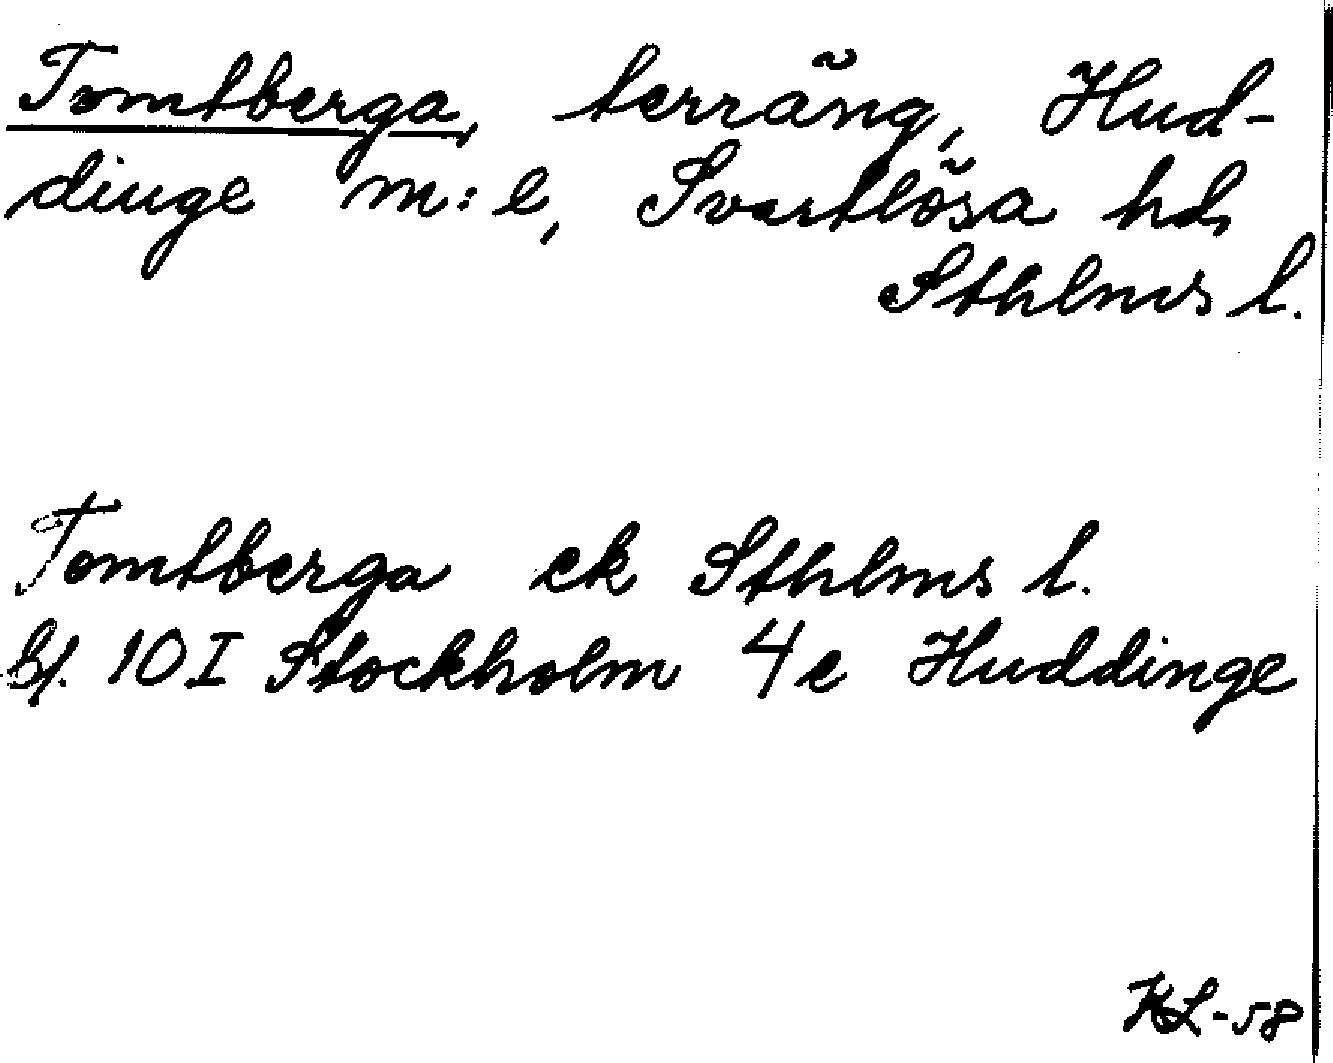 Tomtberga, terräng, Hud-
dinge m:e, Svartlösa hd,
Sthlms l.
Tomtberga ek Sthlms l.
bl. 10 I Stockholm 4 e Huddinge
KL-58